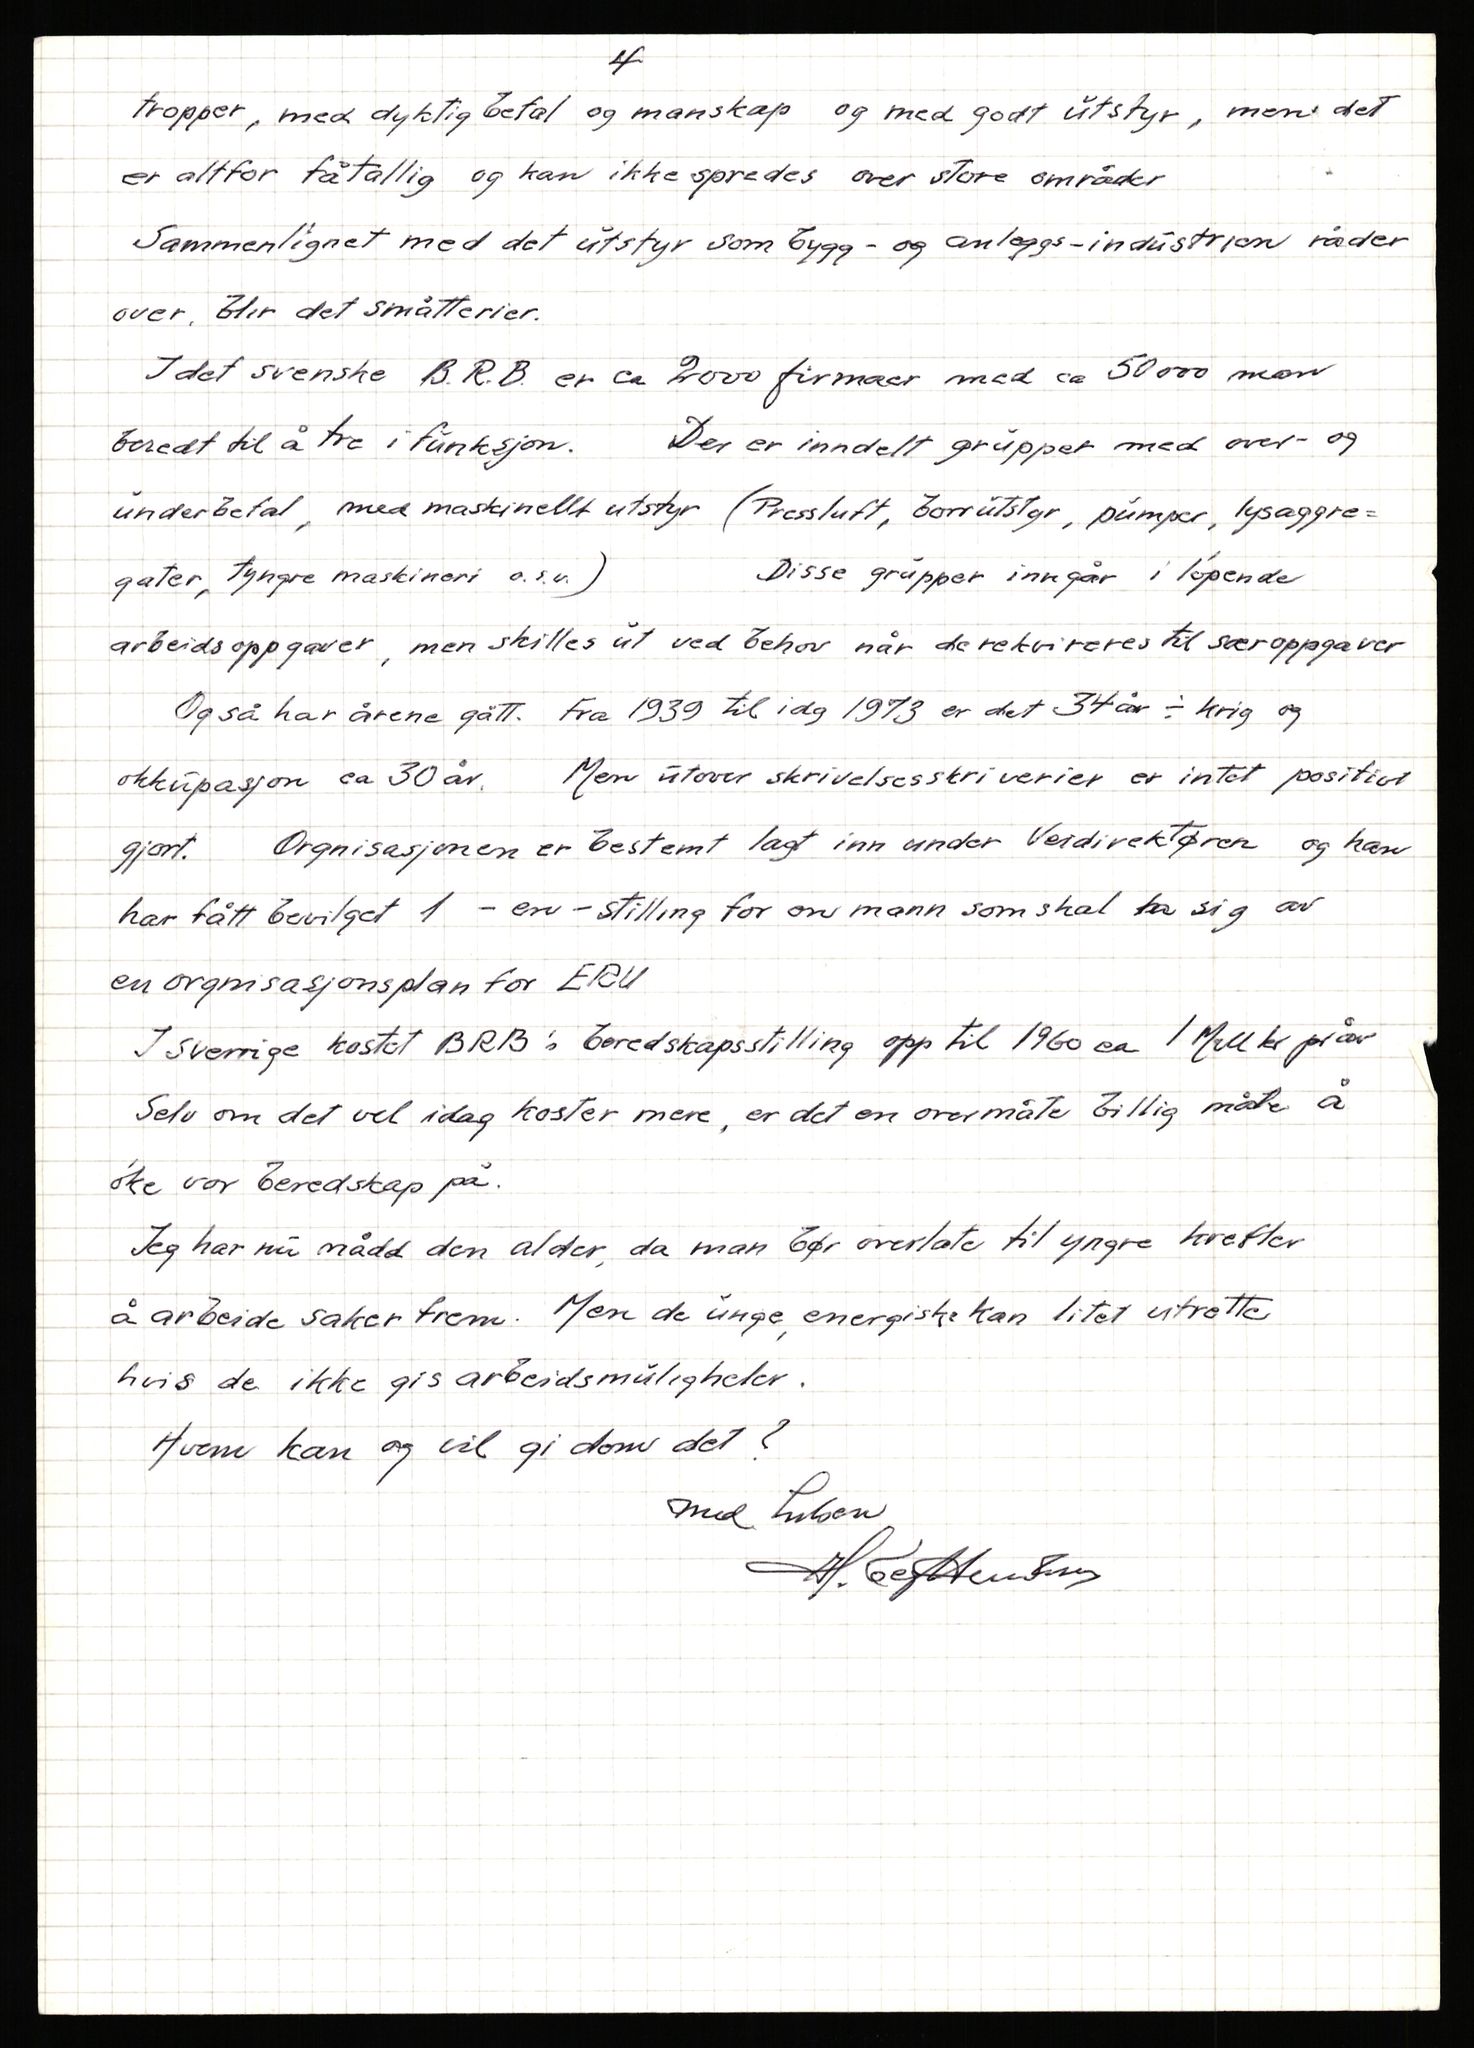 4
tropper, med dyktig befal og manskap og med godt utstyr, men det
er altfor fåtallig og kan ikke spredes over store områder
Sammenlignet med det utstyr som bygg- og anleggs-industrien råder
over, blir det småtterier.
I det svenske B.R.B. er ca 2000 firmaer med ca 50000 man
beredt til å tre i funksjon. Der er inndelt grupper med over- og
underbefal, med maskinellt utstyr (Pressluft, borrutstyr, pumper, lysaggre=
gater, tyngre maskineri o.s.v.) Disse grupper inngår i løpende
arbeidsoppgaver, men skilles ut ved behov når de rekvireres til særoppgaver
Og så har årene gått. Fra 1939 til idg 1973 er det 34 år ÷ krig og
okkupasjon ca 30 år. Men utover skrivelsesskriverier er intet positivt
gjort. Orgnisasjonen er bestemt lagt inn under Veidirektøren og han
har fått bevilget 1 - en - stilling for en mann som skal ta sig av
en orgnisasjonsplan for ERU
I Sverrige kostet BRB's beredskapsstilling opp til 1960 ca 1 Mill kr pr år
Selv om det vel idag koster mere, er det en overmåte billig måte å
øke vor beredskap på.
Jeg har nu nådd den alder, da man bør overlate til yngre krefter
å arbeide saker frem. Men de unge, energiske kan litet utrette
hvis de ikke gis arbeidsmuligheter.
Hvem kan og vil gi dem det?
med hilsen
H.